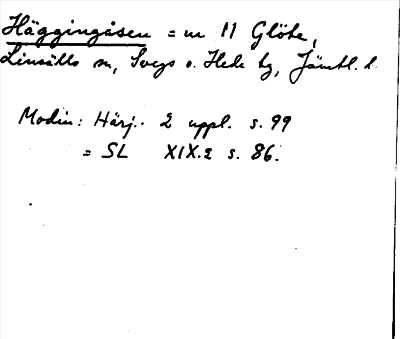 Häggingåsen = nr 11 Glöte,
Linsälls sn, Svegs o. Hede tg, Jämtl. l.
Modin: Härj. 2 uppl. s. 99
= SL XIX.2 s. 86.